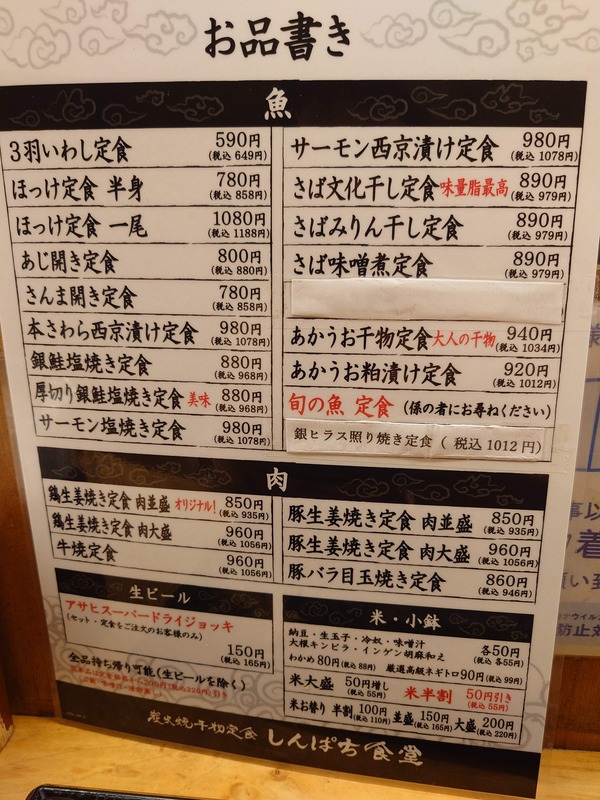 お品書き
魚
3羽いわし定食 590円 (税込 649円)
ほっけ定食 半身 780円 (税込 858円)
ほっけ定食 一尾 1080円 (税込 1188円)
あじ開き定食 800円 (税込 880円)
さんま開き定食 780円 (税込 858円)
本さわら西京漬け定食 980円 (税込 1078円)
銀鮭塩焼き定食 880円 (税込 968円)
厚切り銀鮭塩焼き定食 美味 880円 (税込 968円)
サーモン塩焼き定食 980円 (税込 1078円)
サーモン西京漬け定食 980円 (税込 1078円)
さば文化干し定食 味量脂最高 890円 (税込 979円)
さばみりん干し定食 890円 (税込 979円)
さば味噌煮定食 890円 (税込 979円)
あかうお干物定食 大人の干物 940円 (税込 1034円)
あかうお粕漬け定食 920円 (税込 1012円)
旬の魚 定食 (係の者にお尋ねください)
銀ヒラス照り焼き定食 ( 税込 1012 円)
肉
鶏生姜焼き定食 肉並盛 オリジナル! 850円 (税込 935円)
鶏生姜焼き定食 肉大盛 960円 (税込 1056円)
牛焼定食 960円 (税込 1056円)
豚生姜焼き定食 肉並盛 850円 (税込 935円)
豚生姜焼き定食 肉大盛 960円 (税込 1056円)
豚バラ目玉焼き定食 860円 (税込 946円)
生ビール
アサヒスーパードライジョッキ
(セット・定食をご注文のお客様のみ)
150円
(税込 165円)
全品持ち帰り可能(生ビールを除く)
米・小鉢
納豆・生玉子・冷奴・味噌汁
大根キンピラ・インゲン胡麻和え 各50円 (税込 各55円)
わかめ 80円 (税込 88円) 厳選高級ネギトロ 90円 (税込 99円)
米大盛 50円増し (税込 55円) 米半割 50円引き (税込 55円)
米お替り 半割 100円 (税込 110円) 並盛 150円 (税込 165円) 大盛 200円 (税込 220円)
炭火焼干物定食 しんぱち食堂